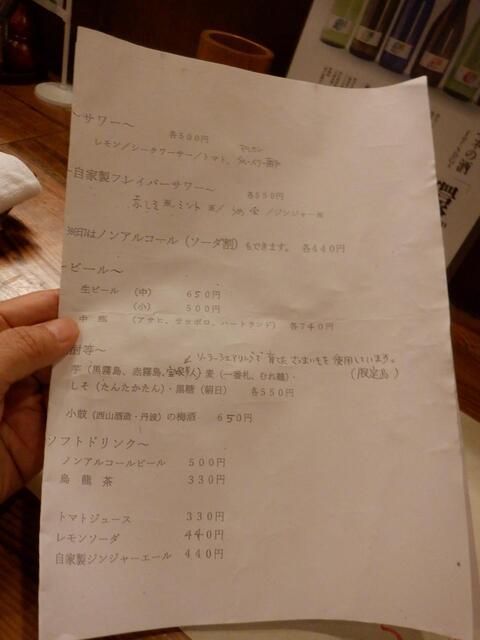 ~サワー~
各500円
レモン/シークワーサー/トマト、
~自家製フレイバーサワー~
各550円
赤しそ ミント /ジンジャー
はノンアルコール(ソーダ割)もできます。 各440円
ビール~
生ビール (中) 650円
(小) 500円
中瓶 (アサヒ、サッポロ、ハートランド) 各740円
酎等~
ソーラーシェアリングで育てたさつまいもを使用しています。
芋(黒霧島、赤霧島、 )麦(一番札、むれ鶴)・
(限定島)
しそ(たんたかたん)・黒糖(朝日) 各550円
小鼓(西山酒造・丹波)の梅酒 650円
ソフトドリンク~
ノンアルコールビール 500円
烏龍茶 330円
トマトジュース 330円
レモンソーダ 440円
自家製ジンジャーエール 440円
の酒